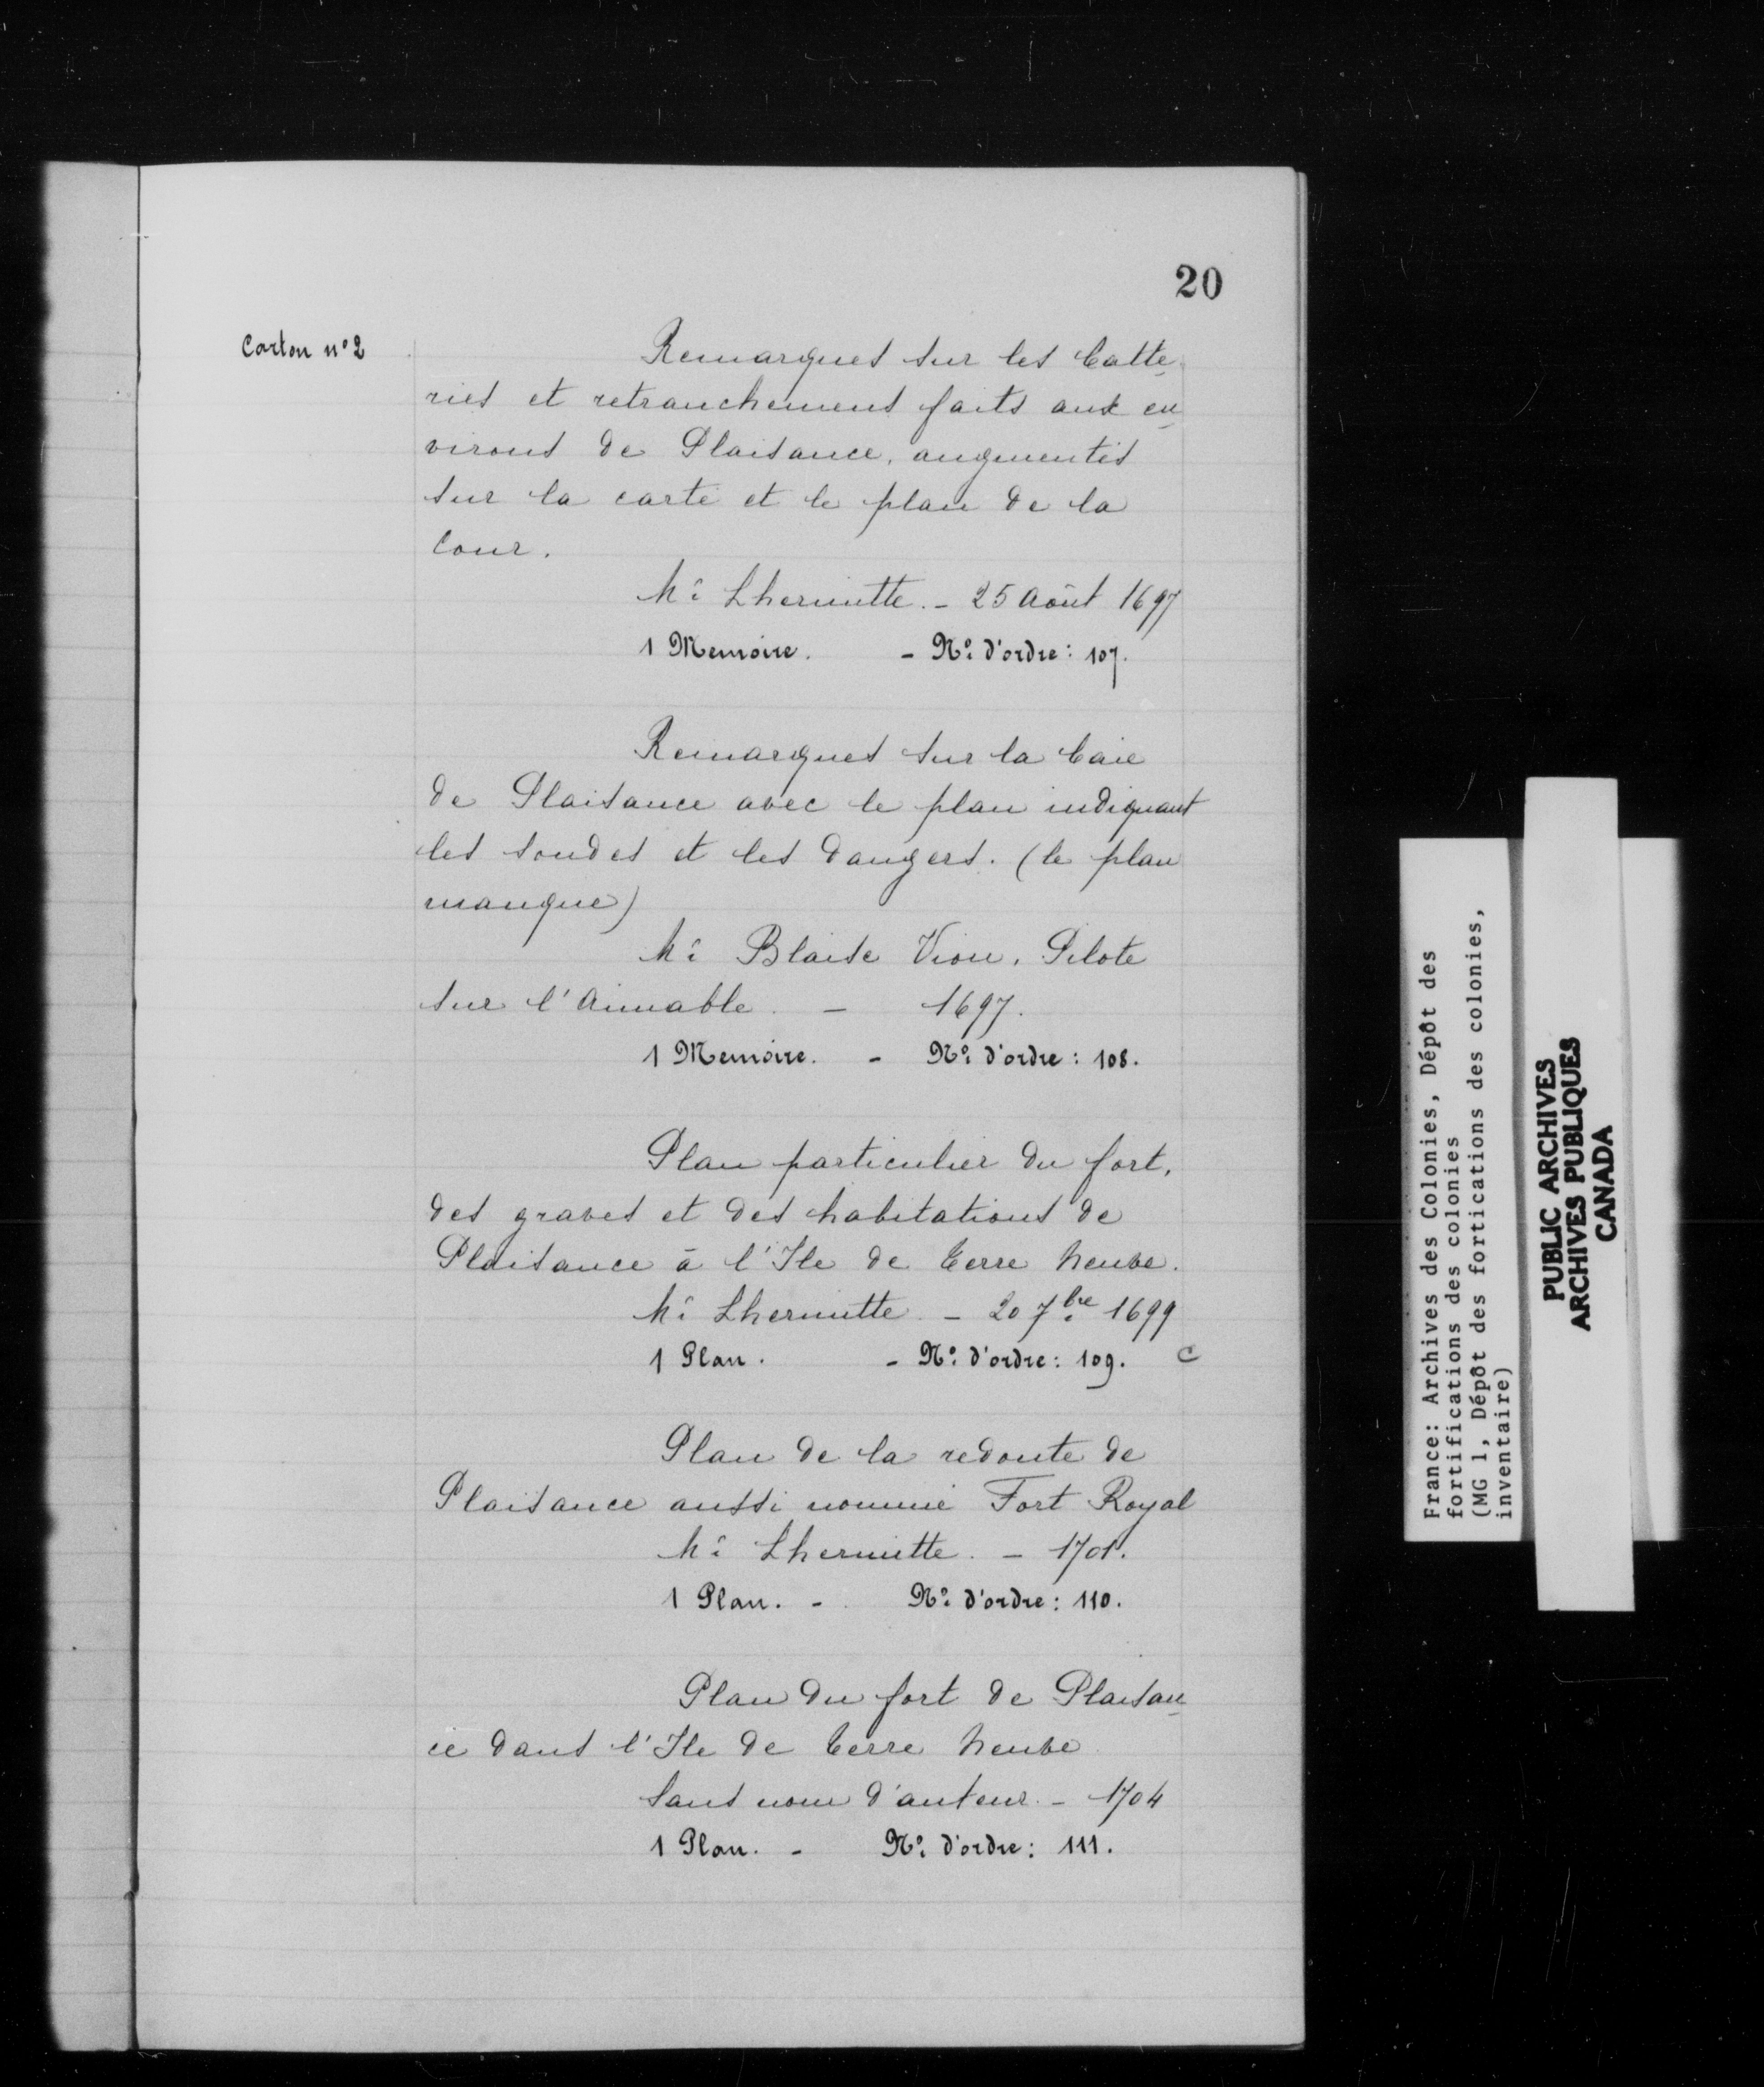 20
Carton n° 2
Remarques sur les batte-
ries et retranchemens faits aux en-
virons de Plaisance, augmentés
sur la carte et le plan de la
Cour.
Mr Lhermitte. - 25 Août 1697
1 Memoire. - No: d'ordre: 107.
Remarques sur la baie
de Plaisance avec le plan indiquant
les sondes et les dangers. (le plan
manque)
Mr Blaise Viou, Pilote
sur l'Aimable. - 1697.
1 Memoire. - No: d'ordre: 108.
Plan particulier du fort,
des graves et des habitations de
Plaisance à l'Ile de Terre Neuve.
Mr Lhermitte. - 20 7bre 1699
1 Plan. - No: d'ordre: 109. C
Plan de la redoute de
Plaisance aussi nommé Fort Royal
Mr Lhermitte. - 1701.
1 Plan. - No: d'ordre: 110.
Plan du fort de Plaisan-
ce dans l'Ile de Terre Neuve
Sans nom d'auteur. - 1704
1 Plan. - No: d'ordre: 111.
France: Archives des Colonies, Dépôt des
fortifications des colonies
(MG 1, Dépôt des fortications des colonies,
inventaire)
PUBLIC ARCHIVES
ARCHIVES PUBLIQUES
CANADA